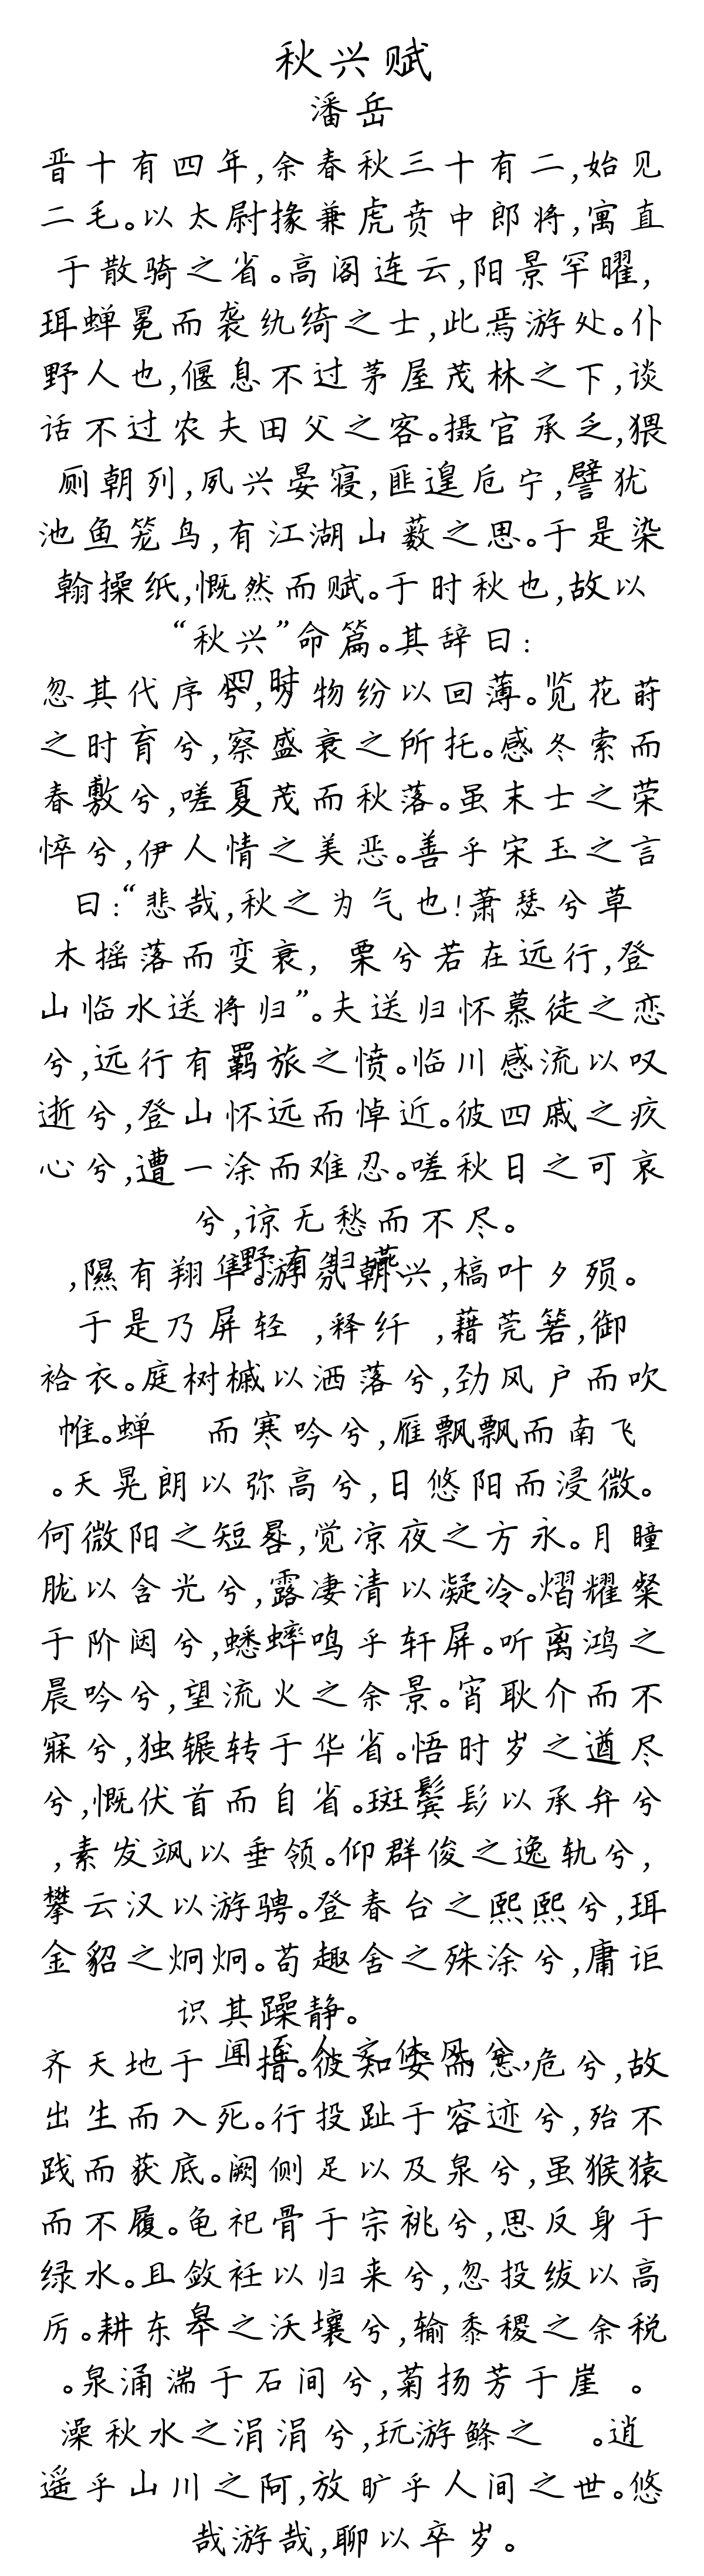 秋兴赋
潘岳
晋十有四年,余春秋三十有二,始见
二毛。以太尉掾兼虎贲中郎将,寓直
于散骑之省。高阁连云,阳景罕曜,
珥蝉冕而袭纨绮之士,此焉游处。仆
野人也,偃息不过茅屋茂林之下,谈
话不过农夫田父之客。摄官承乏,猥
厕朝列,夙兴晏寝,匪遑卮宁,譬犹
池鱼笼鸟,有江湖山薮之思。于是染
翰操纸,慨然而赋。于时秋也,故以
“秋兴”命篇。其辞曰:
四时
忽其代序兮,万物纷以回薄。览花莳
之时育兮,察盛衰之所托。感冬索而
春敷兮,嗟夏茂而秋落。虽末士之荣
悴兮,伊人情之美恶。善乎宋玉之言
曰:“悲哉,秋之为气也!萧瑟兮草
木摇落而变衰, 栗兮若在远行,登
山临水送将归”。夫送归怀慕徒之恋
兮,远行有羁旅之愤。临川感流以叹
逝兮,登山怀远而悼近。彼四戚之疚
心兮,遭一涂而难忍。嗟秋日之可哀
兮,谅无愁而不尽。
野有归燕
,隰有翔隼。游氛朝兴,槁叶夕殒。
于是乃屏轻 ,释纤 ,藉莞箬,御
袷衣。庭树槭以洒落兮,劲风户而吹
帷。蝉 而寒吟兮,雁飘飘而南飞
。天晃朗以弥高兮,日悠阳而浸微。
何微阳之短晷,觉凉夜之方永。月瞳
胧以含光兮,露凄清以凝冷。熠耀粲
于阶闼兮,蟋蟀鸣乎轩屏。听离鸿之
晨吟兮,望流火之余景。宵耿介而不
寐兮,独辗转于华省。悟时岁之遒尽
兮,慨伏首而自省。斑鬓髟以承弁兮
,素发飒以垂领。仰群俊之逸轨兮,
攀云汉以游骋。登春台之熙熙兮,珥
金貂之炯炯。苟趣舍之殊涂兮,庸讵
识其躁静。
闻至人之休风兮,
齐天地于一指。彼知安而忘危兮,故
出生而入死。行投趾于容迹兮,殆不
践而获底。阙侧足以及泉兮,虽猴猿
而不履。龟祀骨于宗祧兮,思反身于
绿水。且敛衽以归来兮,忽投绂以高
厉。耕东皋之沃壤兮,输黍稷之余税
。泉涌湍于石间兮,菊扬芳于崖 。
澡秋水之涓涓兮,玩游鲦之 。逍
遥乎山川之阿,放旷乎人间之世。悠
哉游哉,聊以卒岁。